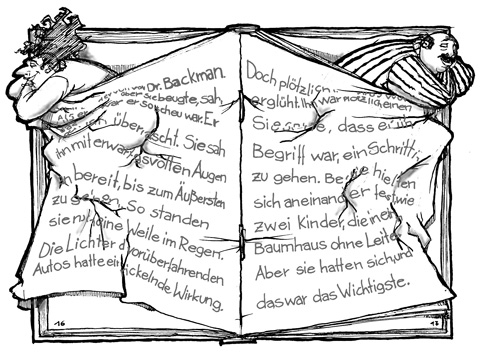 von Dr. Backman.
aber sie beugte, sah
Als er war er so scheu war. Er
über scht. Sie sah
ihn mit erwar gsvollen Augen
an bereit, bis zum Äußersten
zu gehen. So standen
sie eine Weile im Regen.
Die Lichter vorüberfahrenden
Autos hatte ein ickelnde Wirkung.
16
Doch plötzlich
erglüht. war einen
Sie dass er
Begriff war, ein Schritt
zu gehen. Be e hielten
sich aneinander fest wie
zwei Kinder, die in
Baumhaus ohne Leite
Aber sie hatten sich und
das war das Wichtigste.
17